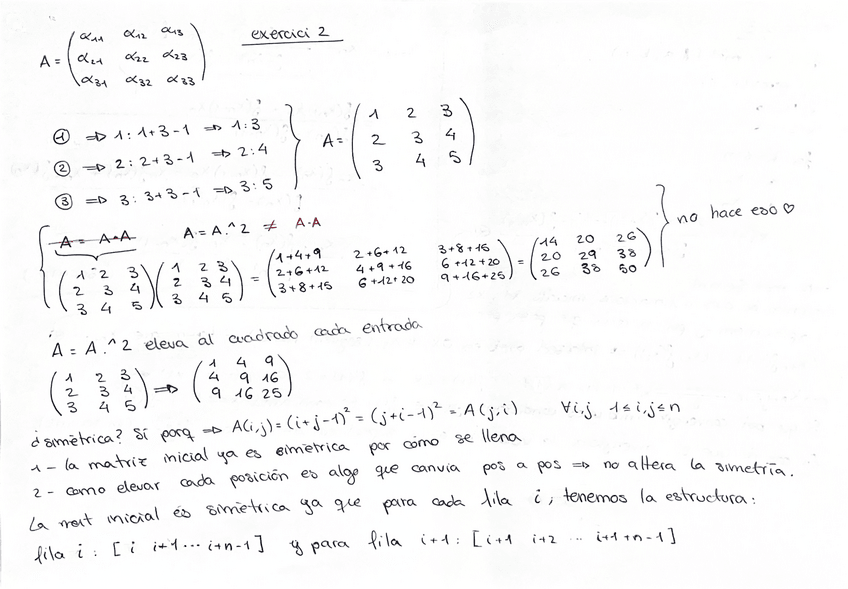 exercici 2
A = ( α11 α12 α13
α21 α22 α23
α31 α32 α33 )
① ⇒ 1 : 1+3-1 ⇒ 1:3
② ⇒ 2 : 2+3-1 ⇒ 2:4
③ ⇒ 3 : 3+3-1 ⇒ 3:5
A = ( 1 2 3
2 3 4
3 4 5 )
A = A*A A = A.^2 ≠ A·A
( 1 2 3
2 3 4
3 4 5 ) ( 1 2 3
2 3 4
3 4 5 ) = ( 1+4+9 2+6+12 3+8+15
2+6+12 4+9+16 6+12+20
3+8+15 6+12+20 9+16+25 ) = ( 14 20 26
20 29 38
26 38 50 )
no hace eso ♡
A = A.^2 eleva al cuadrado cada entrada
( 1 2 3
2 3 4
3 4 5 ) ⇒ ( 1 4 9
4 9 16
9 16 25 )
¿simétrica? Sí porq ⇒ A(i,j) = (i+j-1)² = (j+i-1)² = A(j,i) ∀i,j. 1≤i,j≤n
1 - la matriz inicial ya es simétrica por cómo se llena
2 - como elevar cada posición es algo que canvia pos a pos ⇒ no altera la simetría.
La mat inicial es simétrica ya que para cada fila i, tenemos la estructura:
fila i : [ i i+1 ... i+n-1 ] y para fila i+1 : [ i+1 i+2 ... i+1+n-1 ]